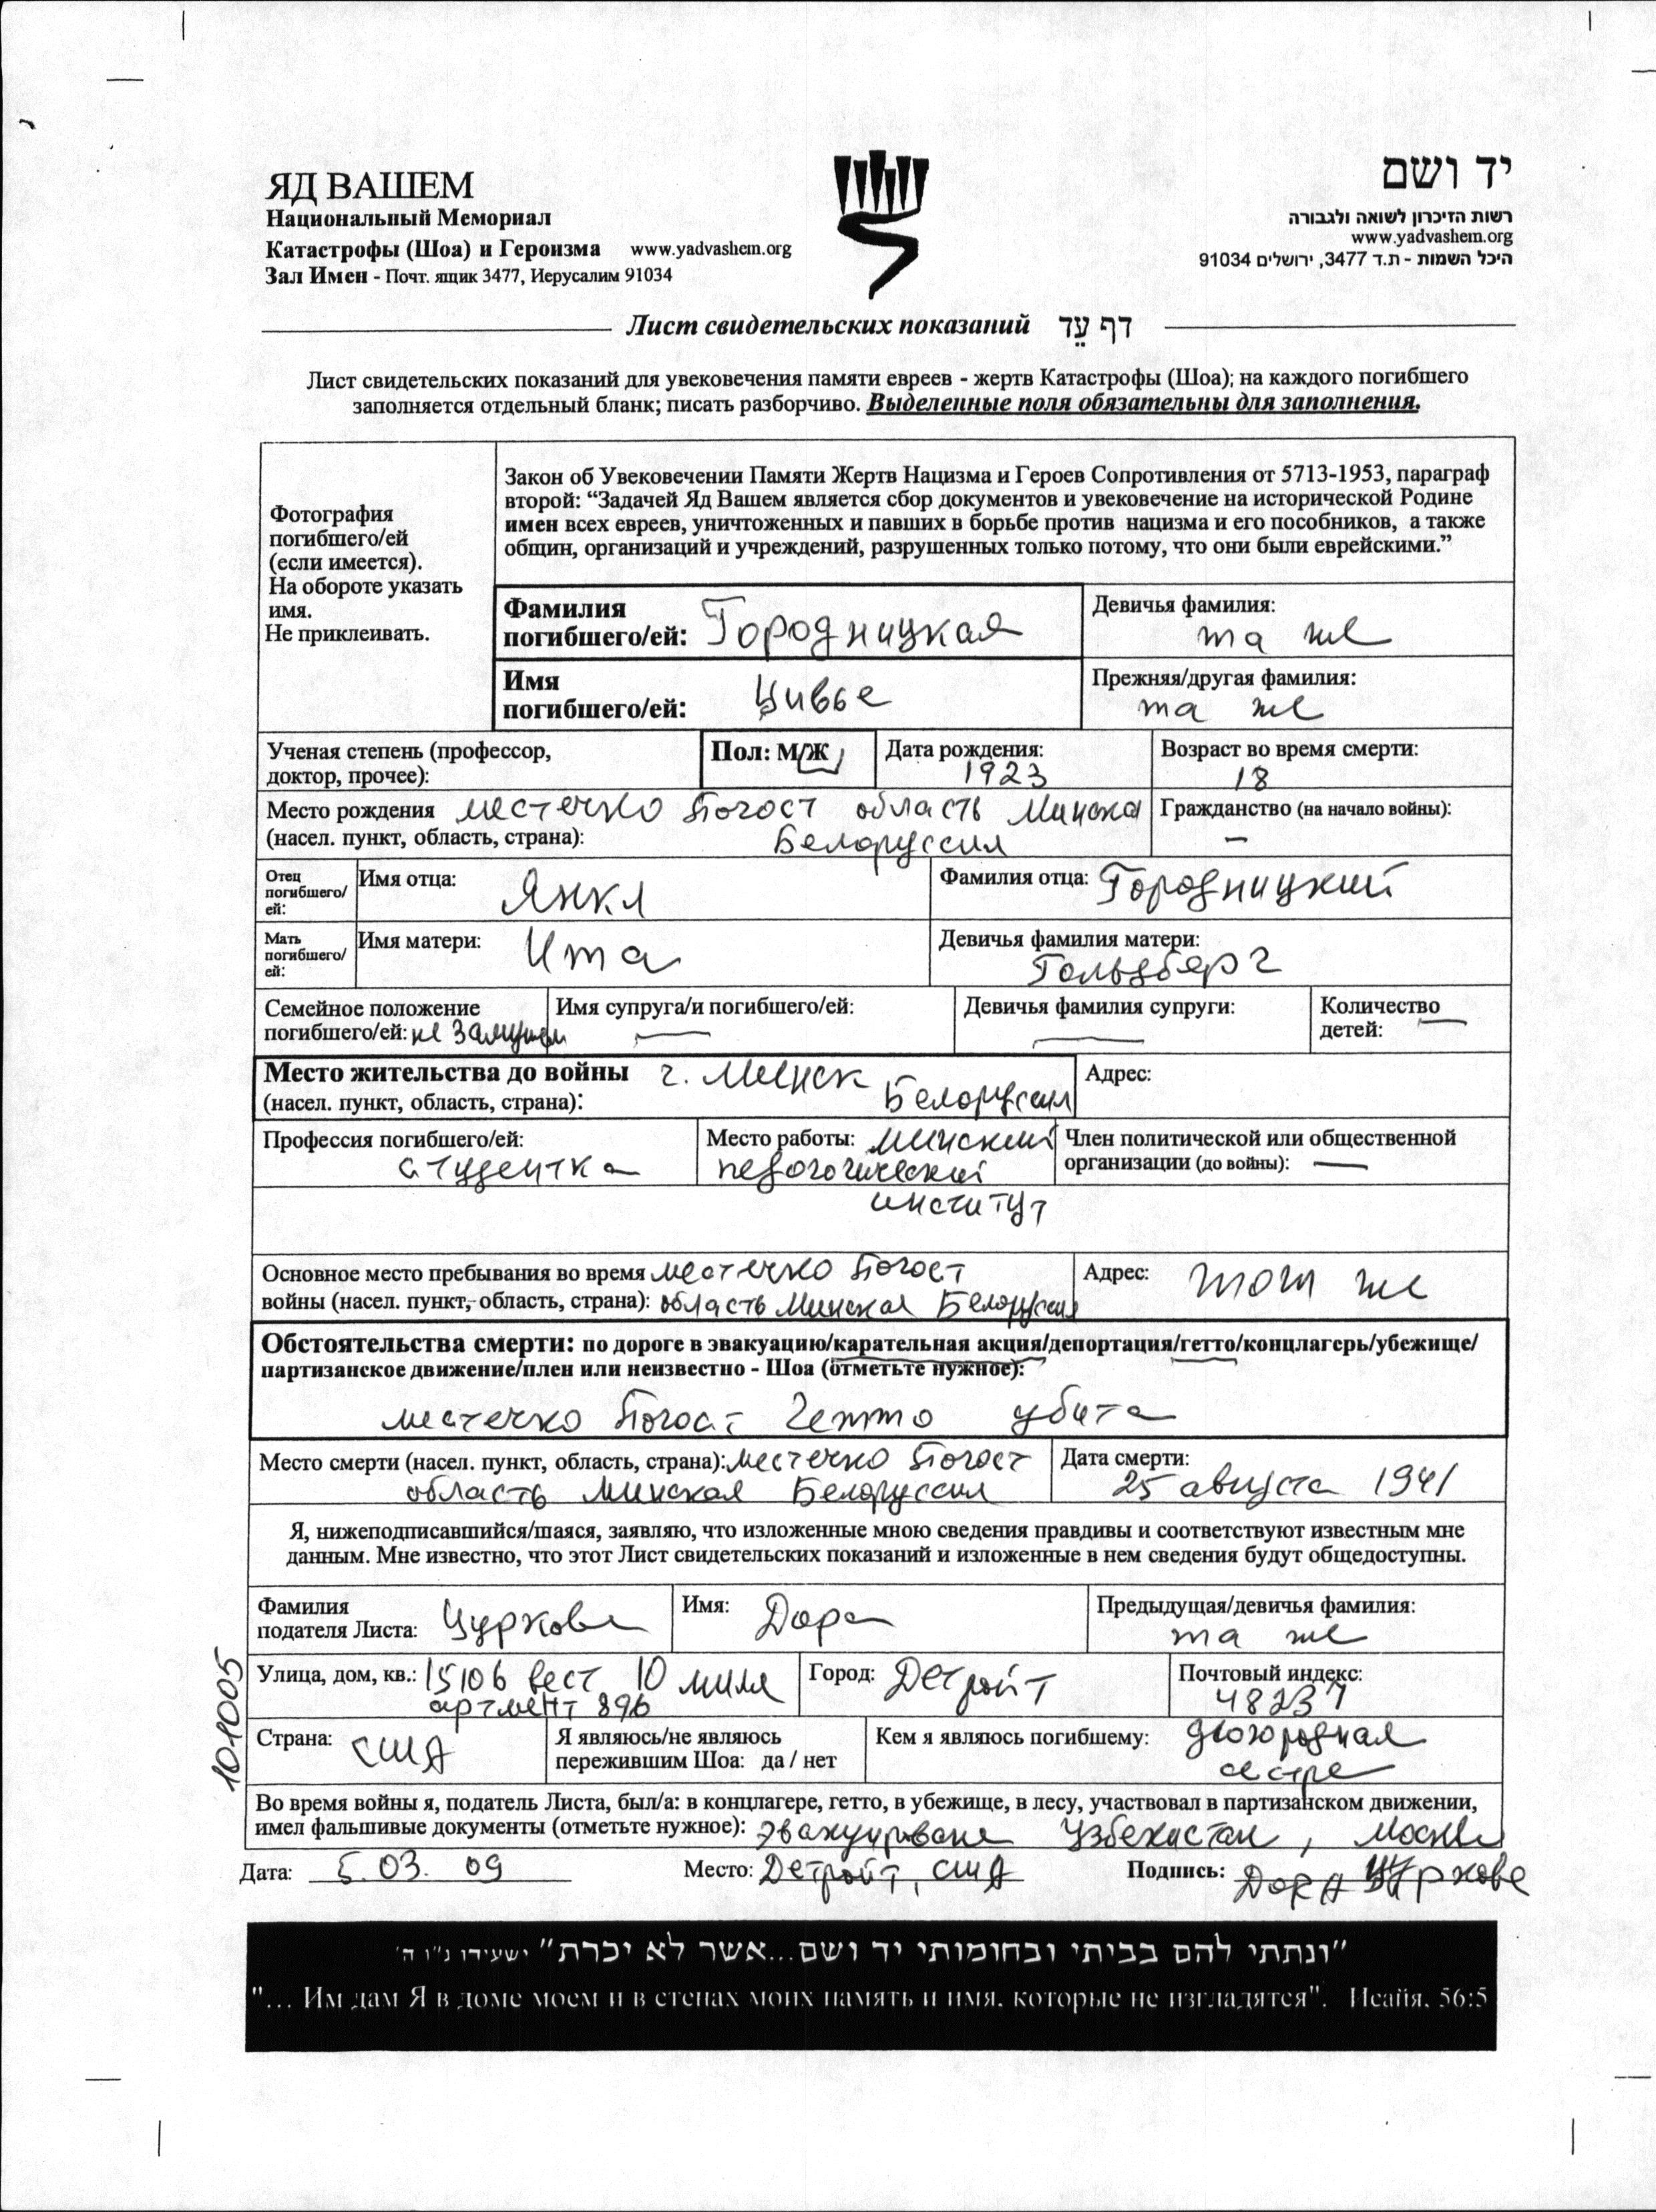 ЯД ВАШЕМ
Национальный Мемориал
Катастрофы (Шоа) и Героизма www.yadvashem.org
Зал Имен - Почт. ящик 3477, Иерусалим 91034
יד ושם
רשות הזיכרון לשואה ולגבורה
www.yadvashem.org
היכל השמות - ת.ד 3477, ירושלים 91034
Лист свидетельских показаний דף עֵד
Лист свидетельских показаний для увековечения памяти евреев - жертв Катастрофы (Шоа); на каждого погибшего
заполняется отдельный бланк; писать разборчиво. Выделенные поля обязательны для заполнения.
Фотография
погибшего/ей
(если имеется).
На обороте указать
имя.
Не приклеивать.
Закон об Увековечении Памяти Жертв Нацизма и Героев Сопротивления от 5713-1953, параграф
второй: “Задачей Яд Вашем является сбор документов и увековечение на исторической Родине
имен всех евреев, уничтоженных и павших в борьбе против нацизма и его пособников, а также
общин, организаций и учреждений, разрушенных только потому, что они были еврейскими.”
Фамилия
погибшего/ей: Городницкая
Девичья фамилия:
та же
Имя
погибшего/ей: Цивье
Прежняя/другая фамилия:
та же
Ученая степень (профессор,
доктор, прочее):
Пол: М/Ж
Дата рождения:
1923
Возраст во время смерти:
18
Место рождения местечко Погост область Минска
(насел. пункт, область, страна): Белоруссия
Гражданство (на начало войны):
–
Отец
погибшего/
ей:
Имя отца: Янкл
Фамилия отца: Городницкий
Мать
погибшего/
ей:
Имя матери: Ита
Девичья фамилия матери:
Гольдберг
Семейное положение
погибшего/ей: не замужем
Имя супруга/и погибшего/ей:
—
Девичья фамилия супруги:
—
Количество
детей: —
Место жительства до войны г. Минск
(насел. пункт, область, страна): Белоруссия
Адрес:
Профессия погибшего/ей:
студентка
Место работы: Минский
педогогический
институт
Член политической или общественной
организации (до войны): —
Основное место пребывания во время местечко Погост
войны (насел. пункт, область, страна): область Минская Белоруссия
Адрес: тот же
Обстоятельства смерти: по дороге в эвакуацию/карательная акция/депортация/гетто/концлагерь/убежище/
партизанское движение/плен или неизвестно - Шоа (отметьте нужное):
местечко Погост Гетто убита
Место смерти (насел. пункт, область, страна): местечко Погост
область Минская Белоруссия
Дата смерти:
25 августа 1941
Я, нижеподписавшийся/шаяся, заявляю, что изложенные мною сведения правдивы и соответствуют известным мне
данным. Мне известно, что этот Лист свидетельских показаний и изложенные в нем сведения будут общедоступны.
Фамилия
подателя Листа: Цуркова
Имя: Дора
Предыдущая/девичья фамилия:
та же
Улица, дом, кв.: 15106 вест 10 миля
артмент 896
Город: Детройт
Почтовый индекс:
48237
Страна: США
Я являюсь/не являюсь
пережившим Шоа: да / нет
Кем я являюсь погибшему: двоюродная
сестра
Во время войны я, податель Листа, был/а: в концлагере, гетто, в убежище, в лесу, участвовал в партизанском движении,
имел фальшивые документы (отметьте нужное): Эвакуирована Узбекистан, Москва
Дата: 5.03.09
Место: Детройт, США
Подпись: Дора Цуркова
101005
"ונתתי להם בביתי ובחומותי יד ושם...אשר לא יכרת" ישעיהו נ"ו ה'
"... Им дам Я в доме моем и в стенах моих память и имя, которые не изгладятся". Исайя, 56:5